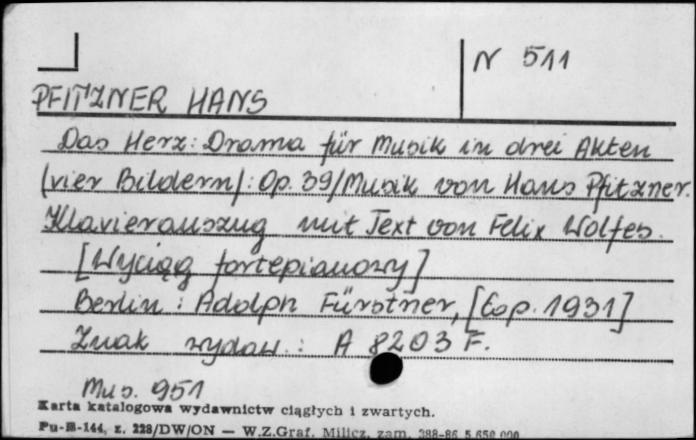 N 511
PFITZNER HANS
Das Herz: Drama für Musik in drei Akten
(vier Bildern): Op. 39/Musik von Hans Pfitzner.
Klavierauszug mit Text von Felix Wolfes.
[Wyciąg fortepianowy]
Berlin: Adolph Fürstner, [Cop. 1931]
Znak wydaw.: A 8203 F.
Mus. 951
Karta katalogowa wydawnictw ciągłych i zwartych.
Pu-B-144, z. 228/DW/ON — W.Z.Graf. Milicz, zam. 388-86 5.650.000